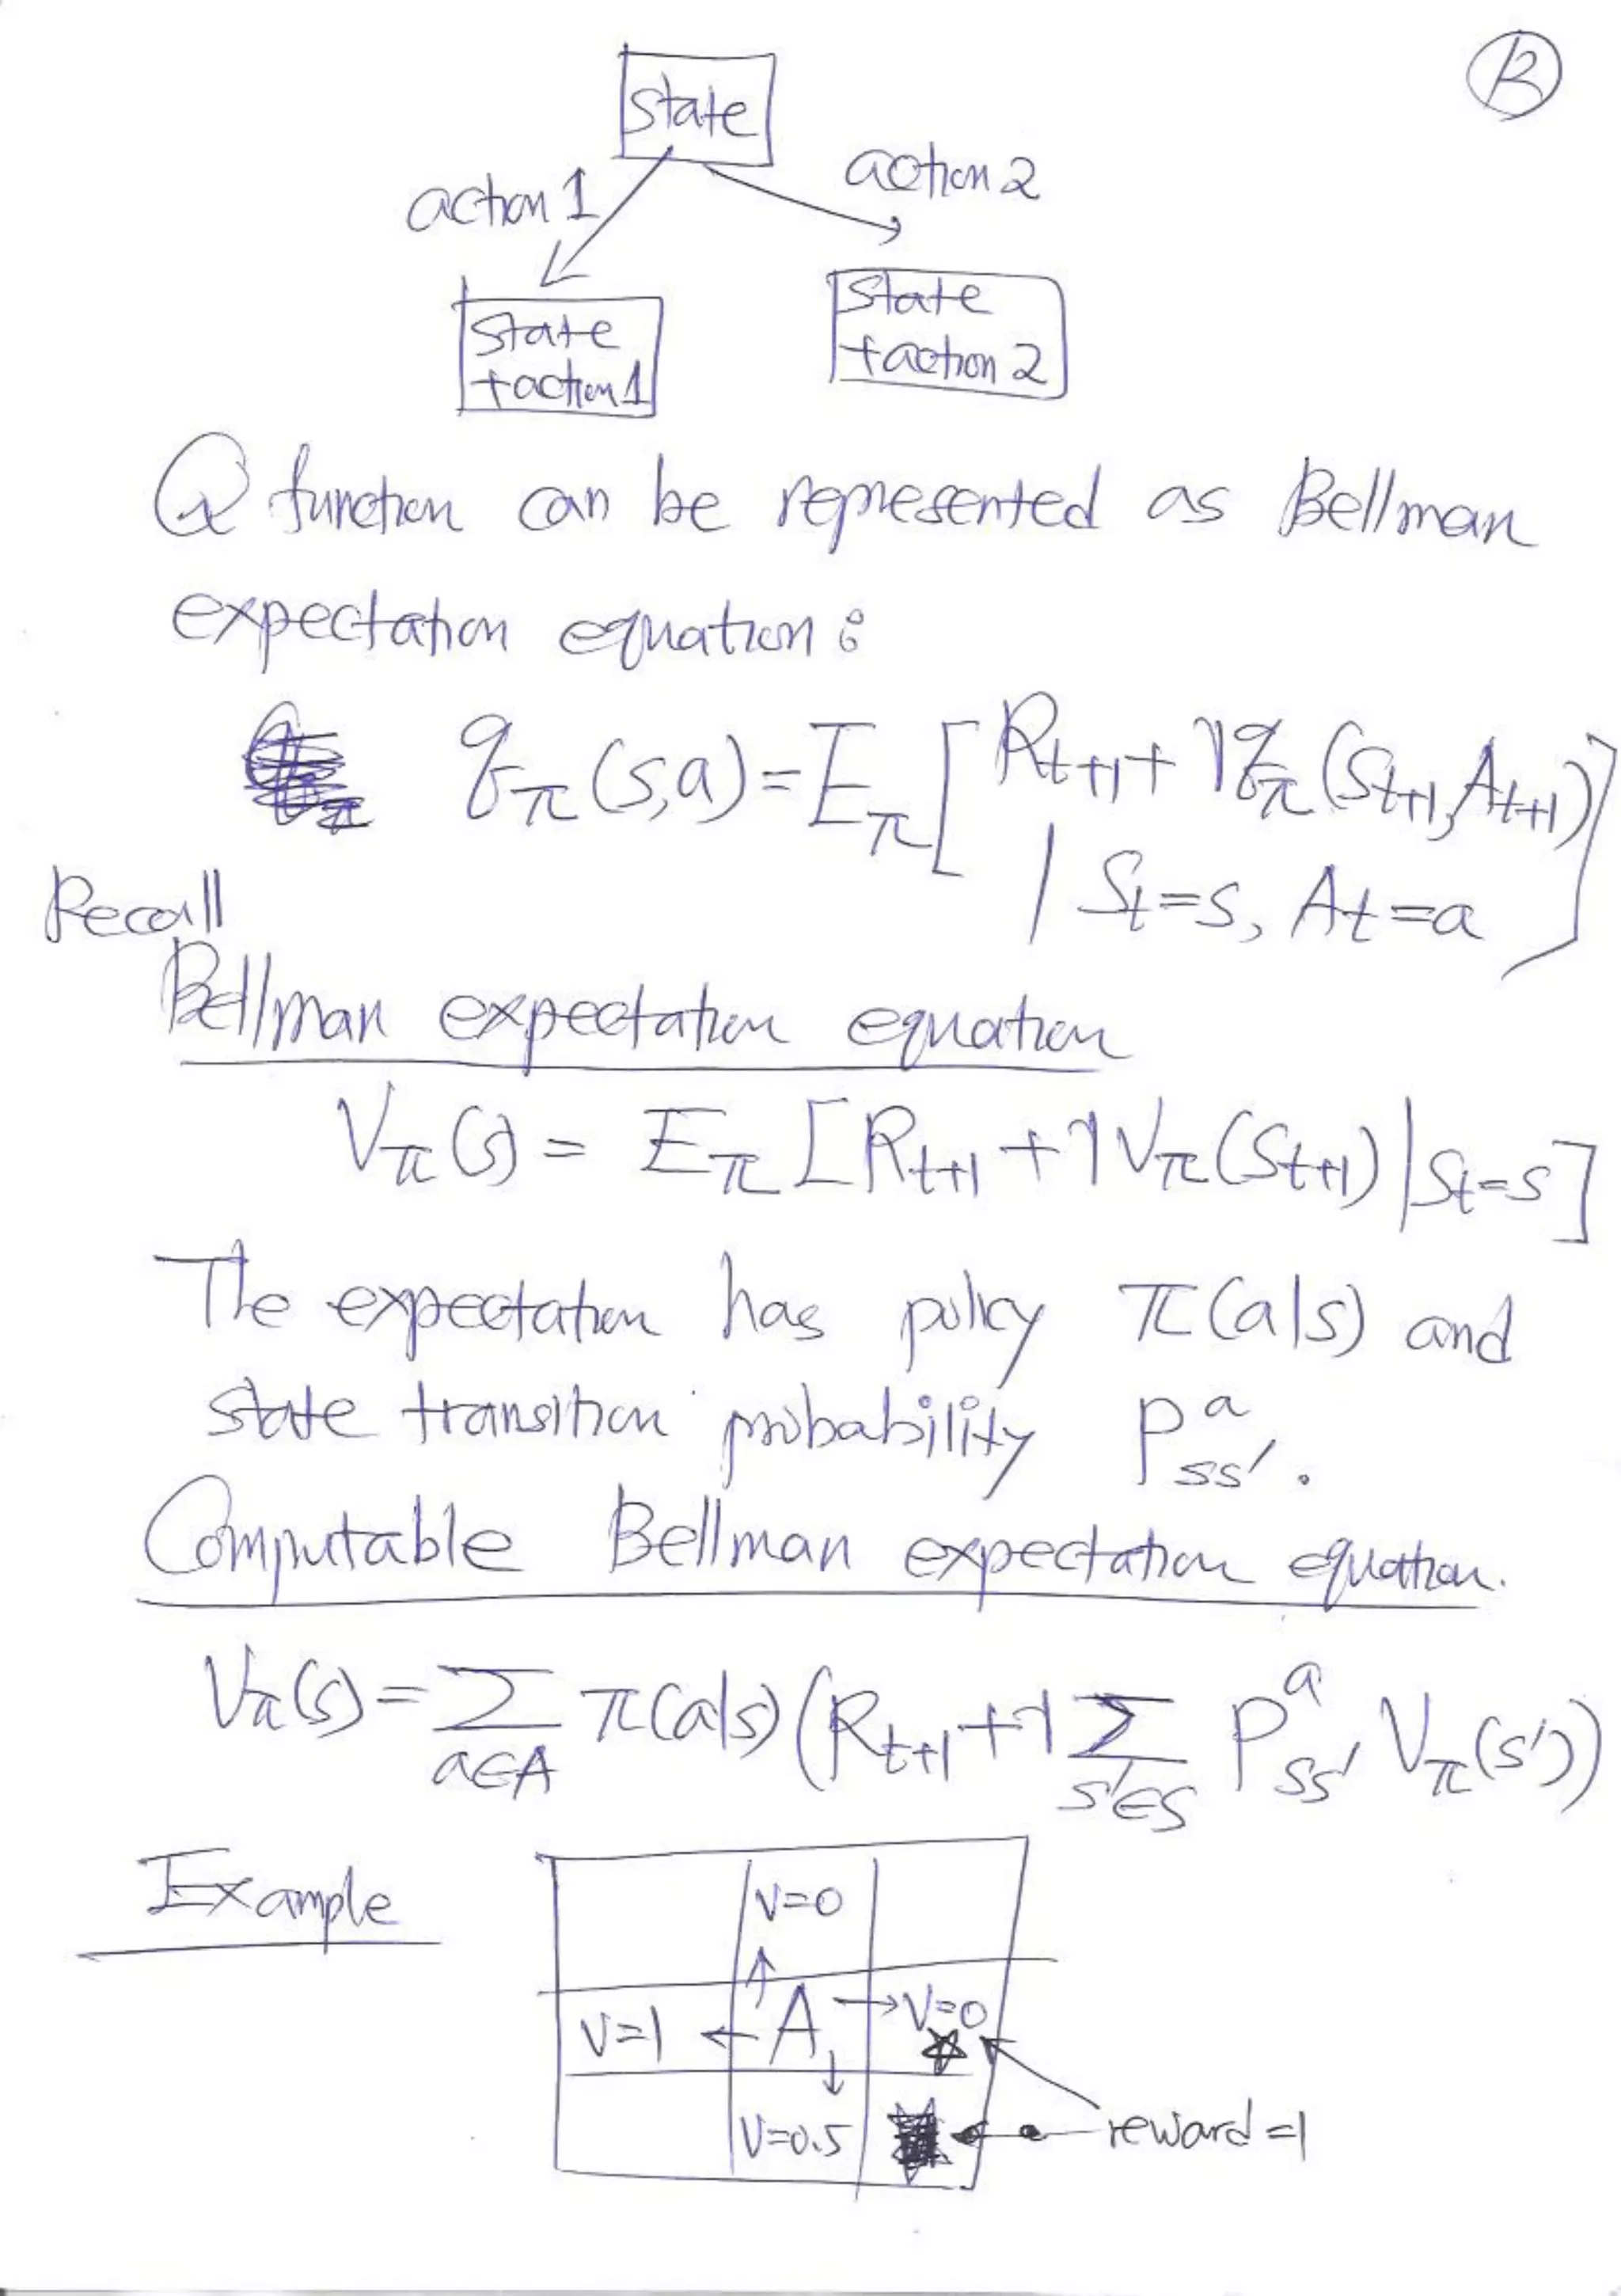 12
state
action 1
action 2
state
+action 1
state
+action 2
Q function can be represented as Bellman
expectation equation:
q_π(s,a) = E_π[R_{t+1} + γq_π(S_{t+1}, A_{t+1})
| S_t=s, A_t=a]
Recall
Bellman expectation equation
V_π(s) = E_π[R_{t+1} + γV_π(S_{t+1}) | S_t=s]
The expectation has policy π(a|s) and
state transition probability P^a_{ss'}.
Computable Bellman expectation equation.
V_π(s) = Σ_{a∈A} π(a|s)(R_{t+1} + γ Σ_{s'∈S} P^a_{ss'} V_π(s'))
Example
V=0
V=1 ← A → V=0
V=0.5
reward=1